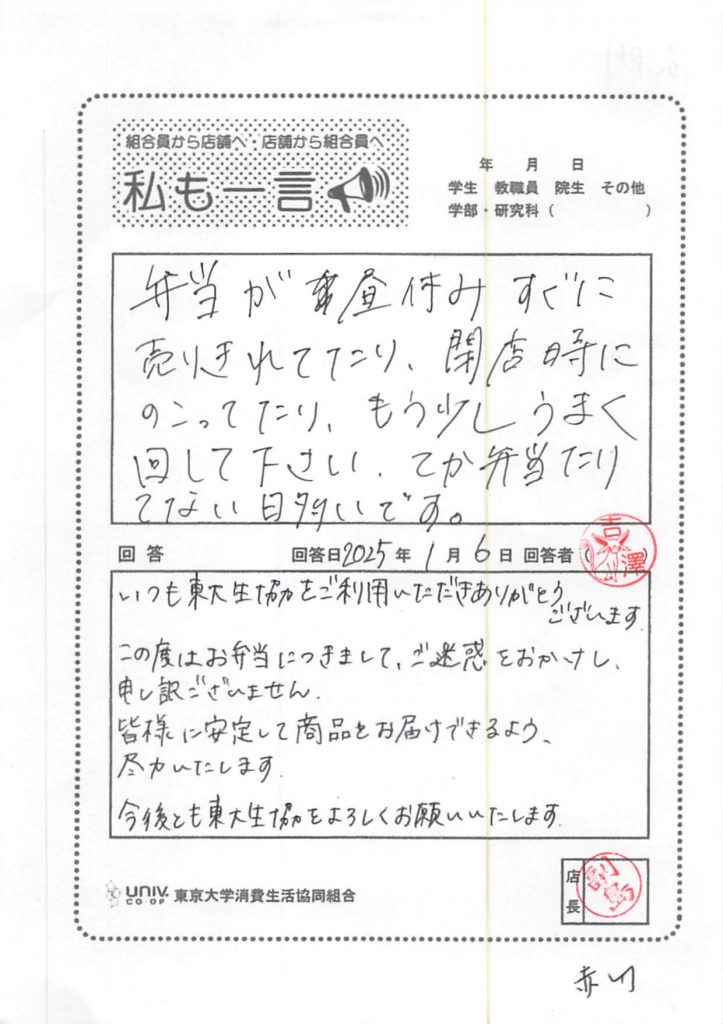 組合員から店舗へ・店舗から組合員へ
私も一言
年 月 日
学生 教職員 院生 その他
学部・研究科（ ）
弁当が昼休みすぐに
売りきれてたり、閉店時に
のこってたり、もう少しうまく
回して下さい、てか弁当たり
てない日多いです。
回答 回答日2025年1月6日 回答者（ ）
吉澤
いつも東大生協をご利用いただきありがとう
ございます。
この度はお弁当につきまして、ご迷惑をおかけし、
申し訳ございません。
皆様に安定して商品をお届けできるよう、
尽力いたします。
今後とも東大生協をよろしくお願いいたします。
UNIV. CO-OP 東京大学消費生活協同組合
店長
赤門